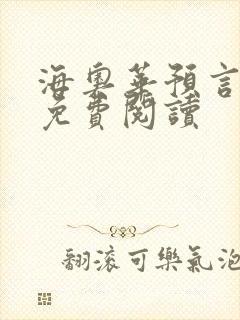 海奧華預言
免費閱讀
翻滾可樂氣泡